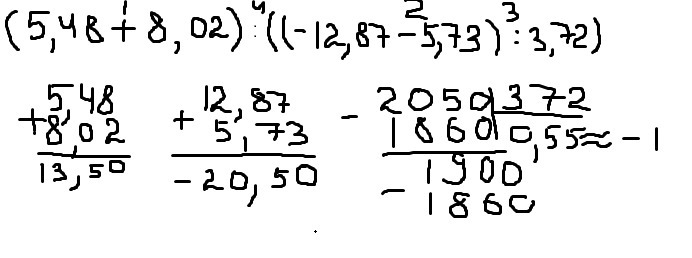 (5,48 + 8,02) : ((-12,87 - 5,73) : 3,72)
1 4 2 3
5,48 12,87 - 2050 372
+ 8,02 + 5,73 1860 0,55≈-1
13,50 -20,50 1900
- 1860